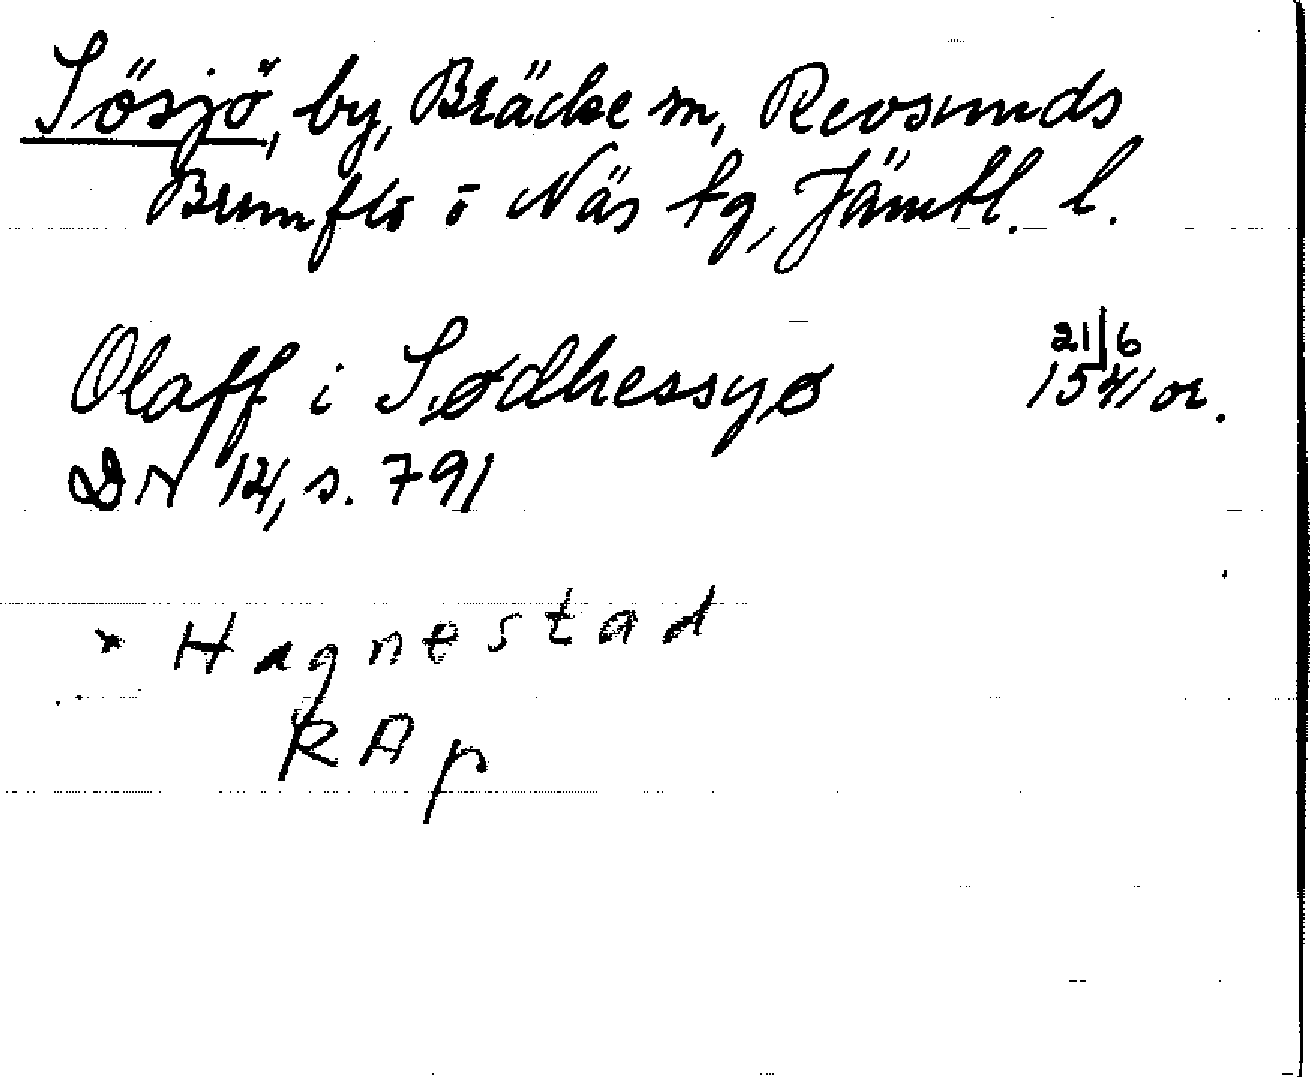 Sösjö, by, Bräcke sn, Revsunds
Brunflo o Näs tg, Jämtl. l.
Olaff i Sødhessyø 21/6 1541 or.
DN 14, s. 791
* Hagnestad
RAp